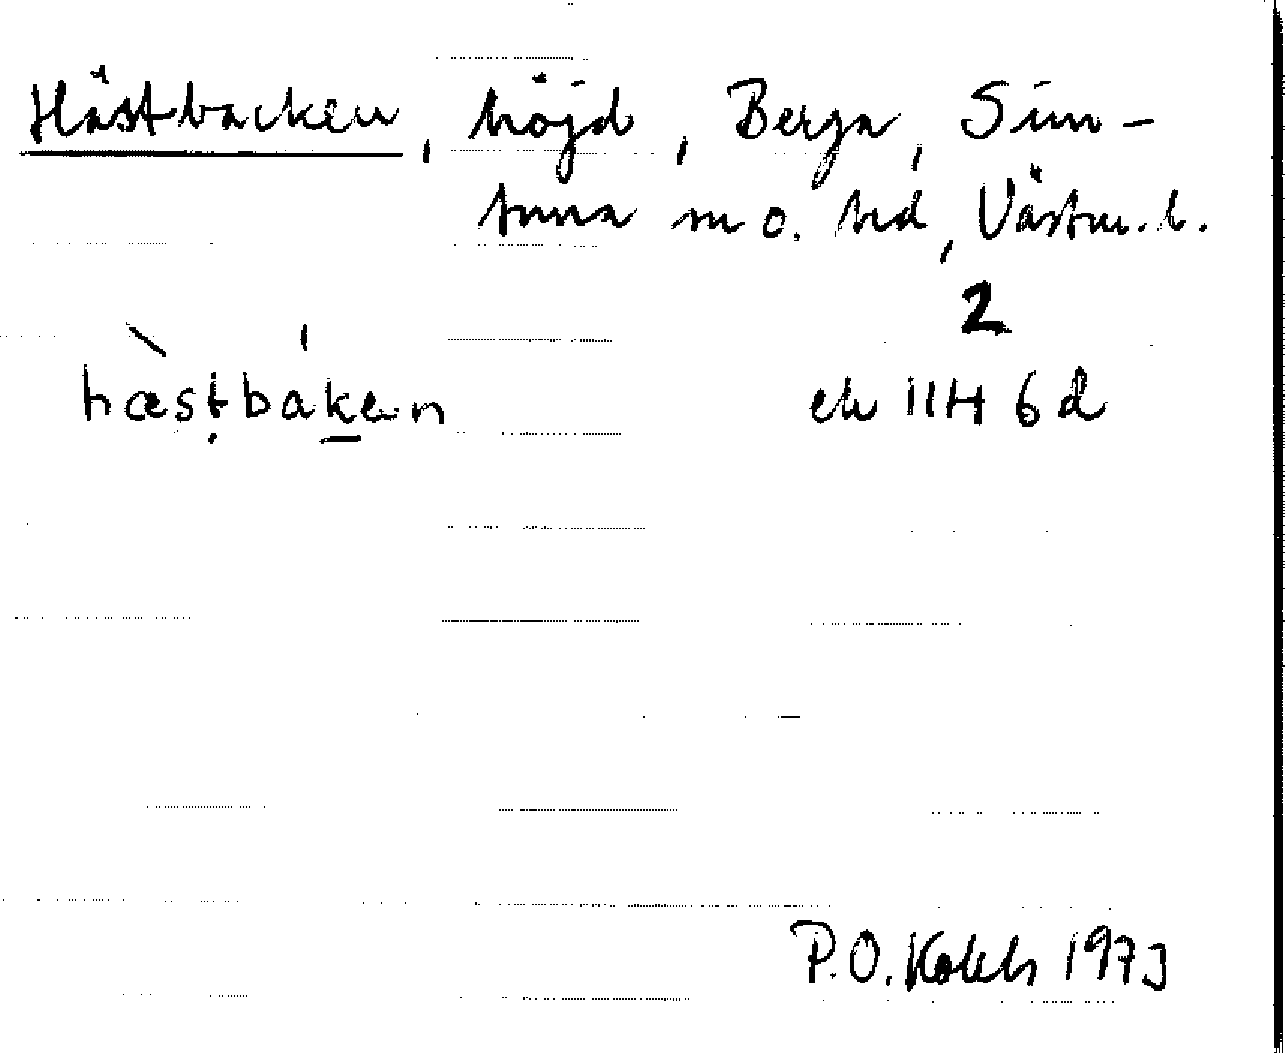 Hästbacken, höjd, Berga, Sim-
tuna sn o. hd, Västm. l.
2
hæstbaken
ek 11H 6d
P.O. 1973